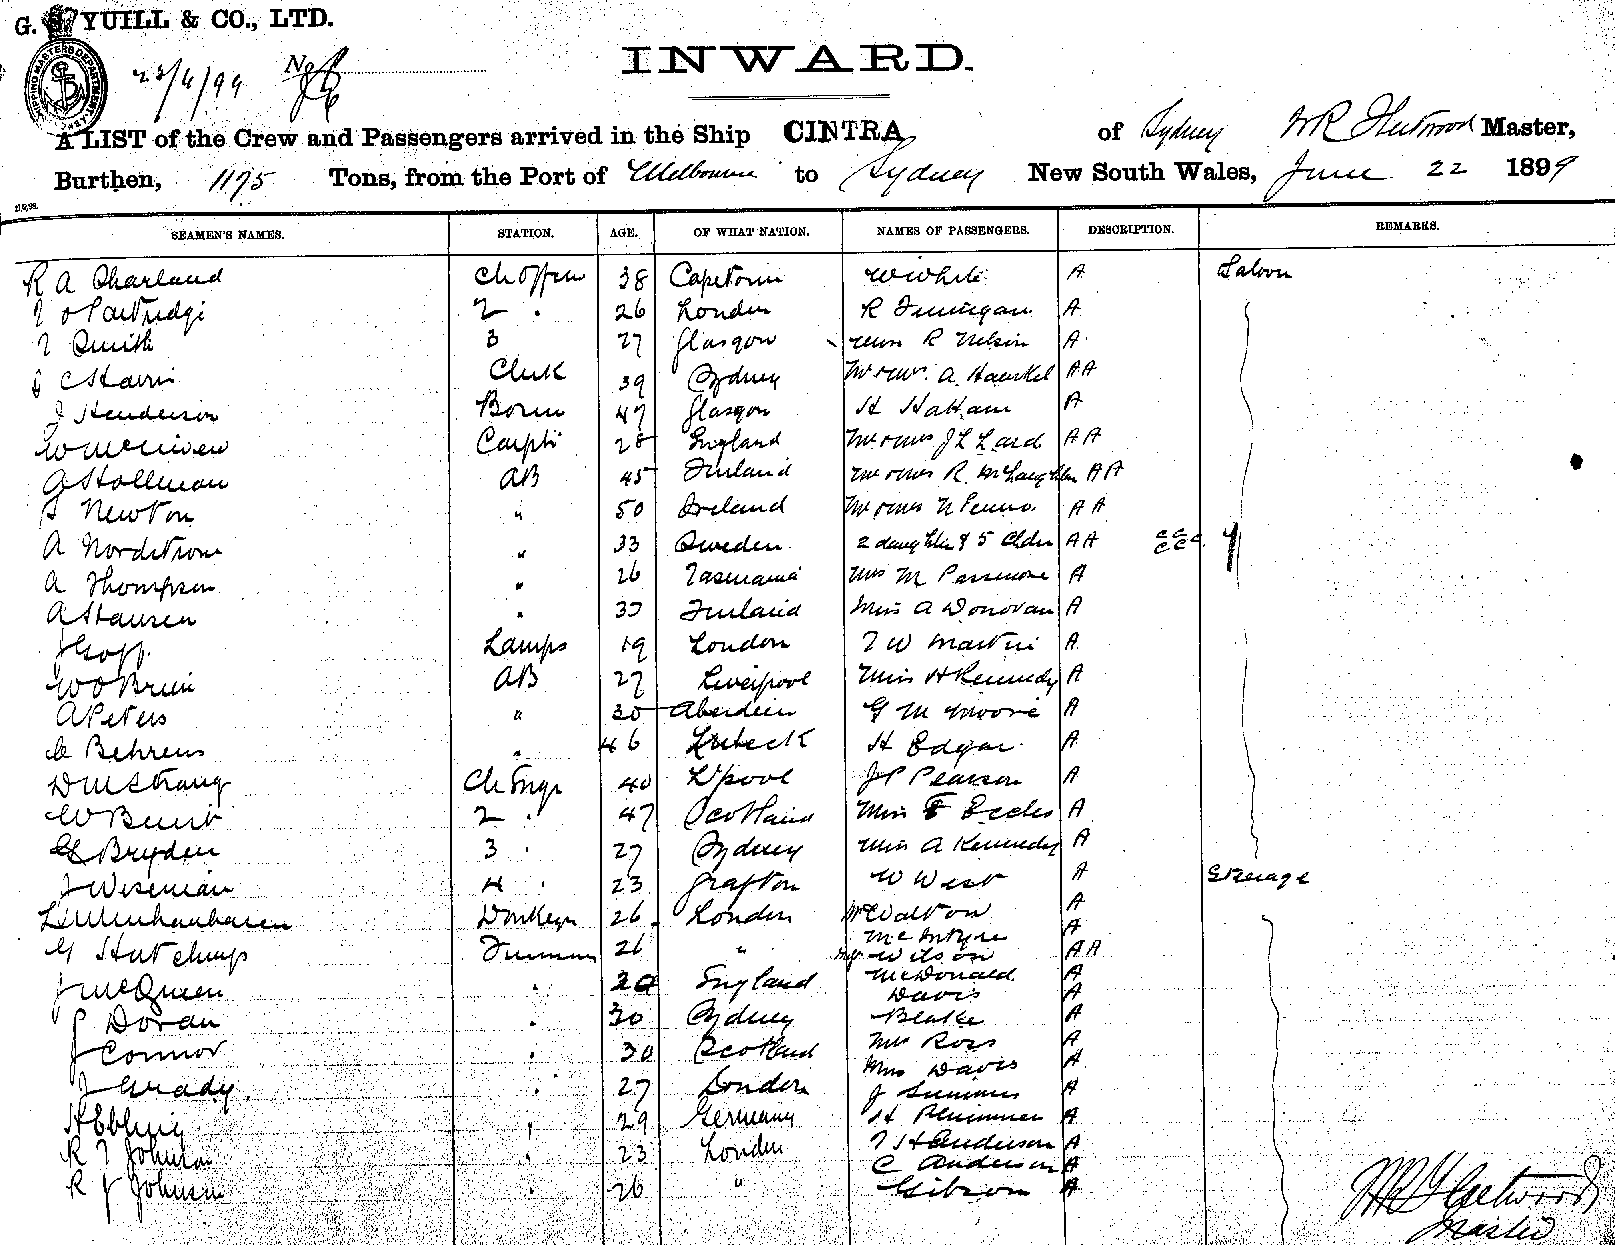 G. S. YUILL & CO., LTD.
SHIPPING MASTERS DEPARTMENT
23/6/99 No
INWARD.
A LIST of the Crew and Passengers arrived in the Ship CINTRA of Sydney W R Fleetwood Master,
Burthen, 1175 Tons, from the Port of Melbourne to Sydney New South Wales, June 22 1899
SEAMEN'S NAMES. STATION. AGE. OF WHAT NATION. NAMES OF PASSENGERS. DESCRIPTION. REMARKS.
R A Charland Ch Offcer 38 Capetown W White A Saloon
Partridge 2 " 26 London R Finnigan A
Smith 3 27 Glasgow R Nelson A
Clerk 39 Sydney Mr & Mrs A. AA
J Henderson Bosun 47 Glasgow H Hallam A
Carptr 28 England Mr & Mrs J L Lard AA
A Hollman AB 45 Finland Mr & Mrs R. McLaughlin AA
Newton " 50 Ireland Mr & Mrs AA
A Nordstrom " 33 Sweden 2 daughters & 5 Chdn AA CCC CC
A Thompson " 26 Tasmania Mrs M Passmore A
A Hansen " 37 Finland Miss A Donovan A
J Goff Lamps 19 London T W Martin A
W O'Brien AB 27 Liverpool Miss H Kennedy A
A Peters " 30 Aberdeen G M Moore A
C Behrens " 46 Lubeck H Edgar A
D McStrang Ch Engr 40 L'pool J P Pearson A
W 2 " 47 Scotland Miss F Eccles A
G Bryden 3 " 27 Sydney Miss A Kennedy A
J Wiseman 4 " 23 Grafton W West A Steerage
Donkeyn 26 London Walton A
McIntyre A
G Hutchings Fireman 26 " Wilson AA
J McQueen " 20 England McDonald A
Davis A
J Doran " 30 Sydney Blake A
J Connor " 30 Scotland Mrs Ross A
Miss Davis A
J Grady " 27 London J Summers A
H Ebbling " 29 Germany H Plummer A
R T Johnson " 23 London T H Anderson A
C Anderson A
R J Johnson " 26 " Gibson A
W R Fleetwood
Master